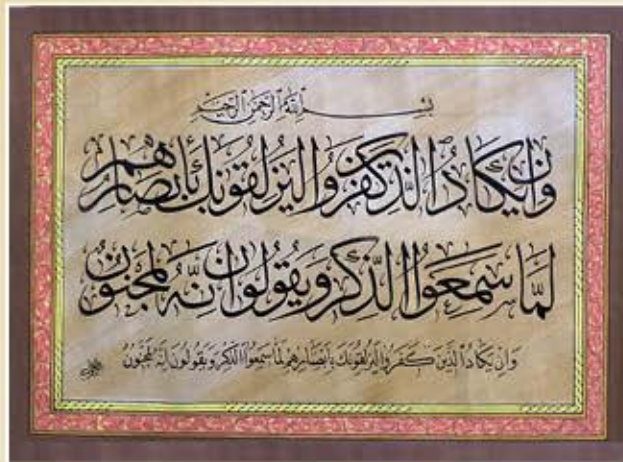 بسم الله الرحمن الرحيم
وان يكاد الذين كفروا ليزلقونك بأبصارهم
لما سمعوا الذكر ويقولون إنه لمجنون
وان يكاد الذين كفروا ليزلقونك بابصارهم لما سمعوا الذكر ويقولون انه لمجنون